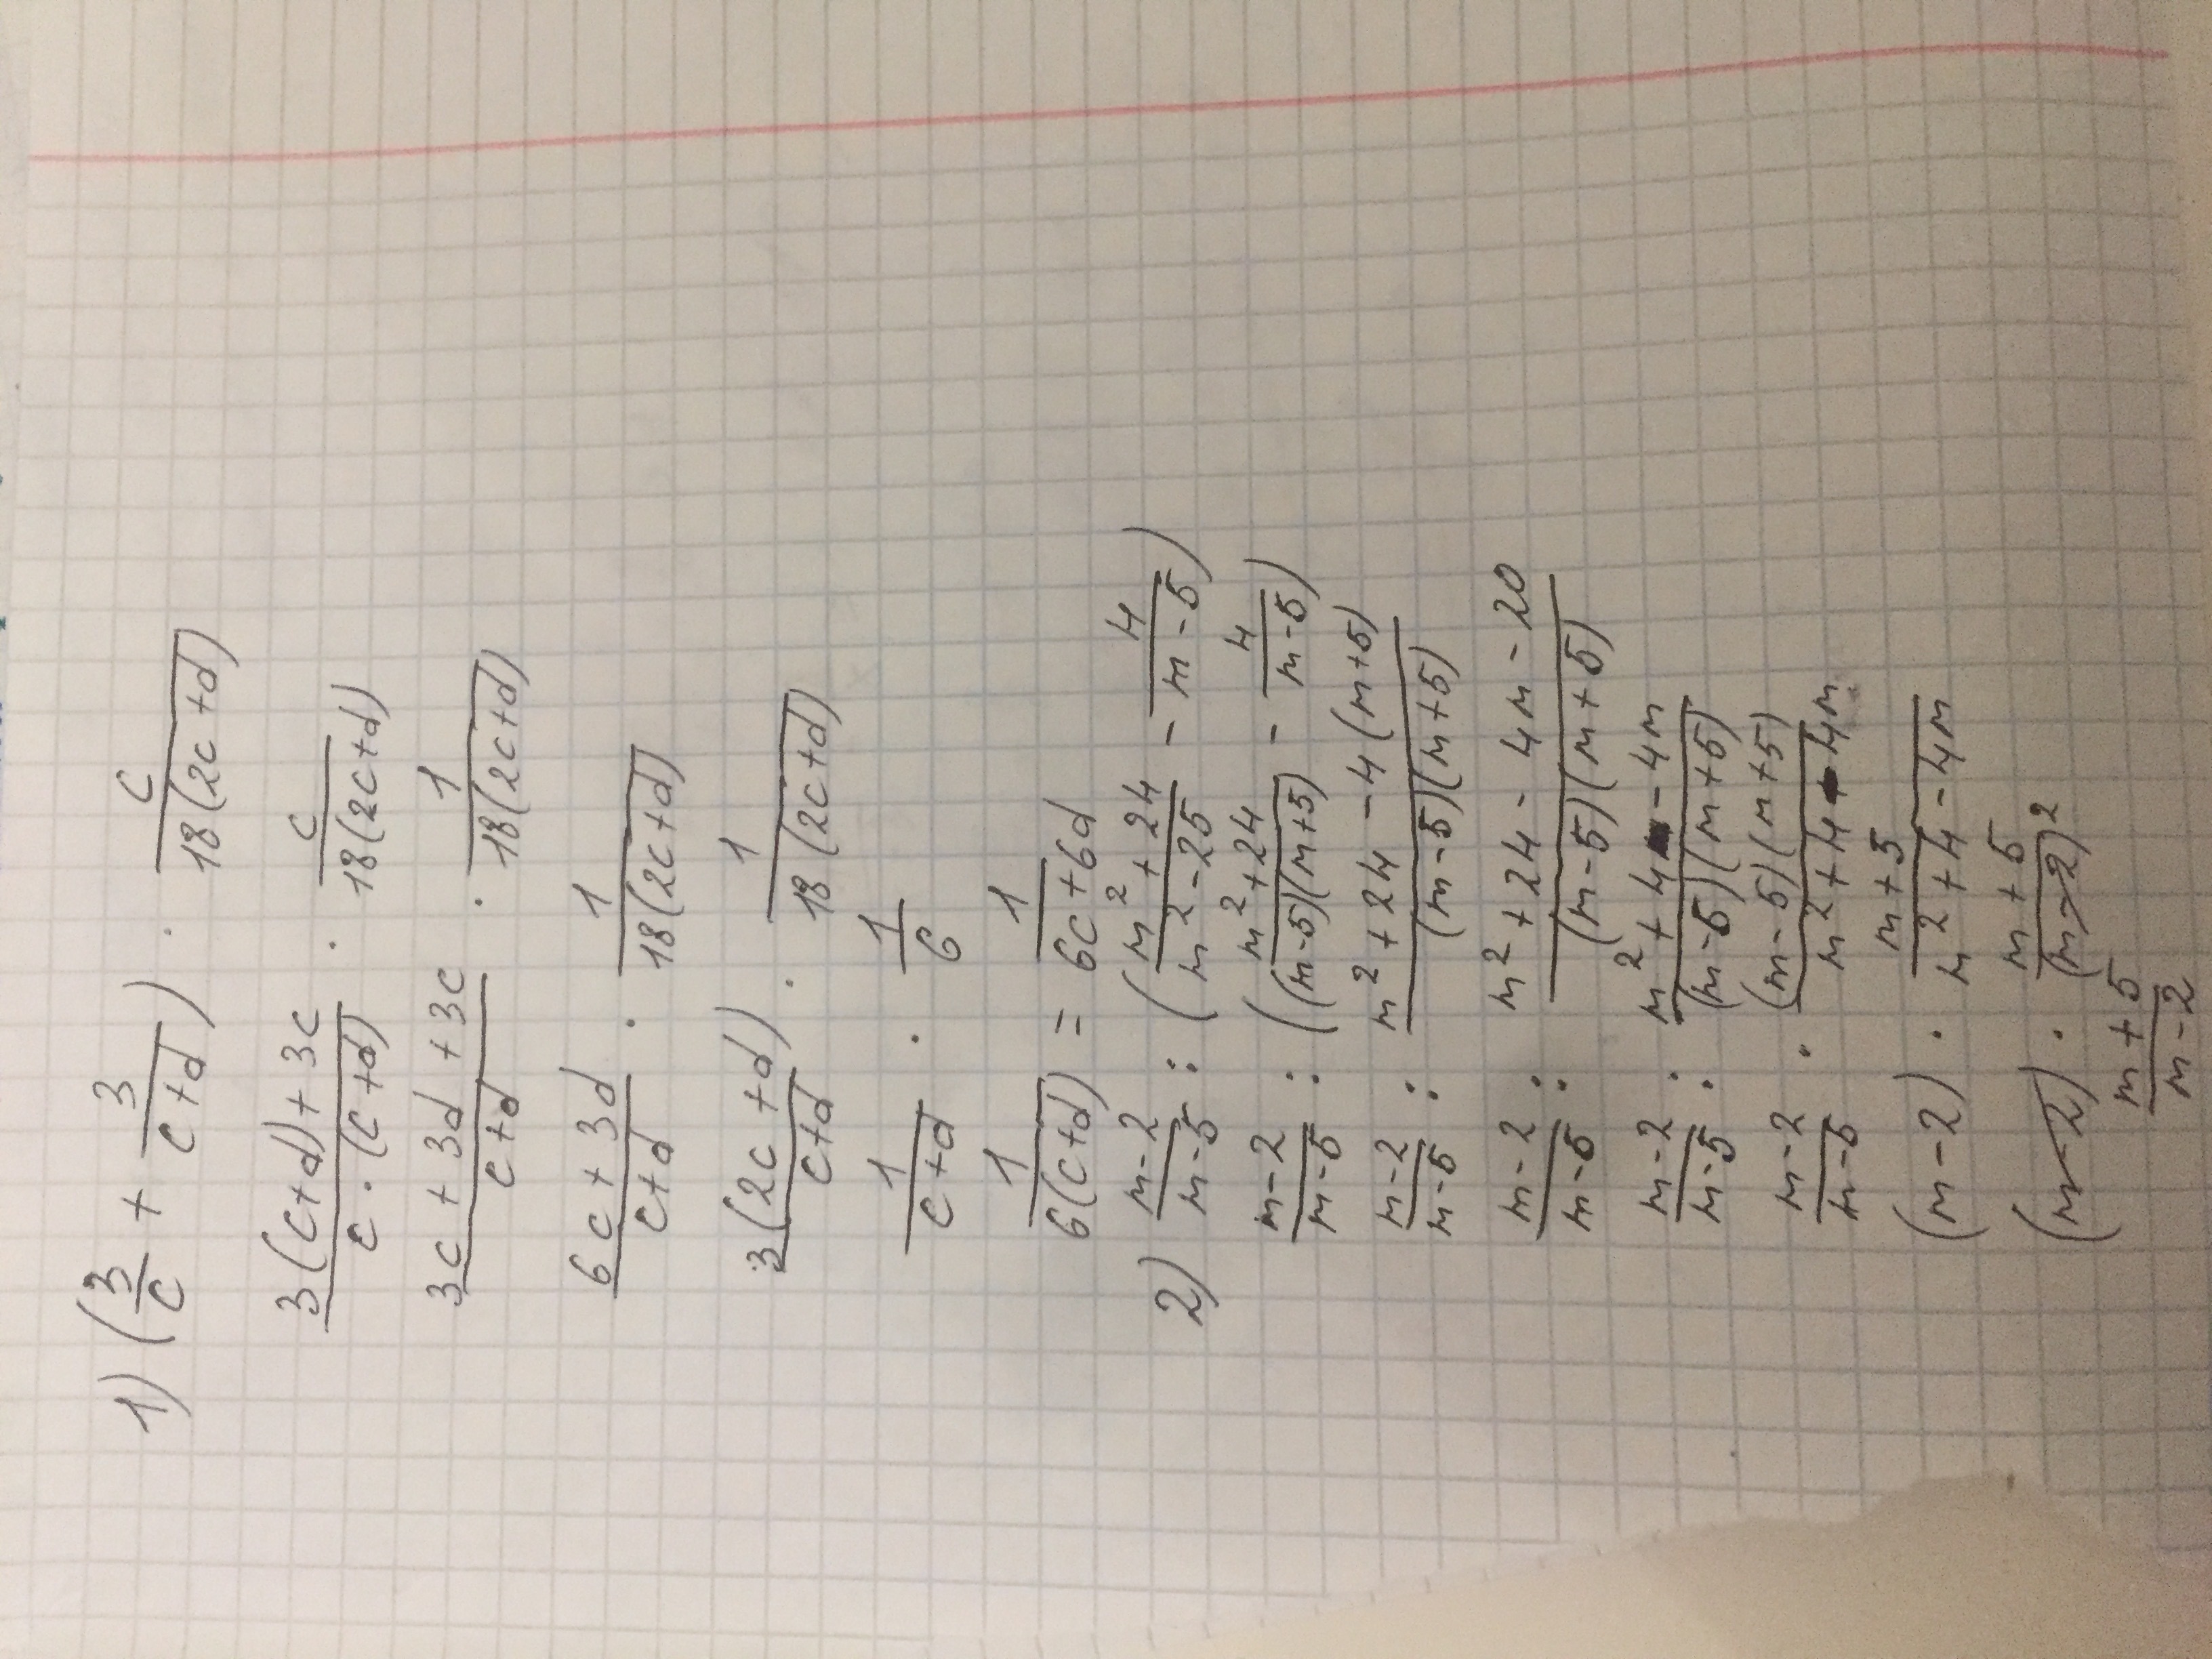 1) (3/c + 3/(c+d)) · c/(18(2c+d))
(3(c+d)+3c)/(c·(c+d)) · c/(18(2c+d))
(3c+3d+3c)/(c+d) · 1/(18(2c+d))
(6c+3d)/(c+d) · 1/(18(2c+d))
3(2c+d)/(c+d) · 1/(18(2c+d))
1/(c+d) · 1/6
1/(6(c+d)) = 1/(6c+6d)
2) (m-2)/(m-5) : ((m²+24)/(m²-25) - 4/(m-5))
(m-2)/(m-5) : ((m²+24)/((m-5)(m+5)) - 4/(m-5))
(m-2)/(m-5) : (m²+24-4(m+5))/((m-5)(m+5))
(m-2)/(m-5) : (m²+24-4m-20)/((m-5)(m+5))
(m-2)/(m-5) : (m²+4-4m)/((m-5)(m+5))
(m-2)/(m-5) · ((m-5)(m+5))/(m²+4-4m)
(m-2) · (m+5)/(m²+4-4m)
(m-2) · (m+5)/(m-2)²
(m+5)/(m-2)